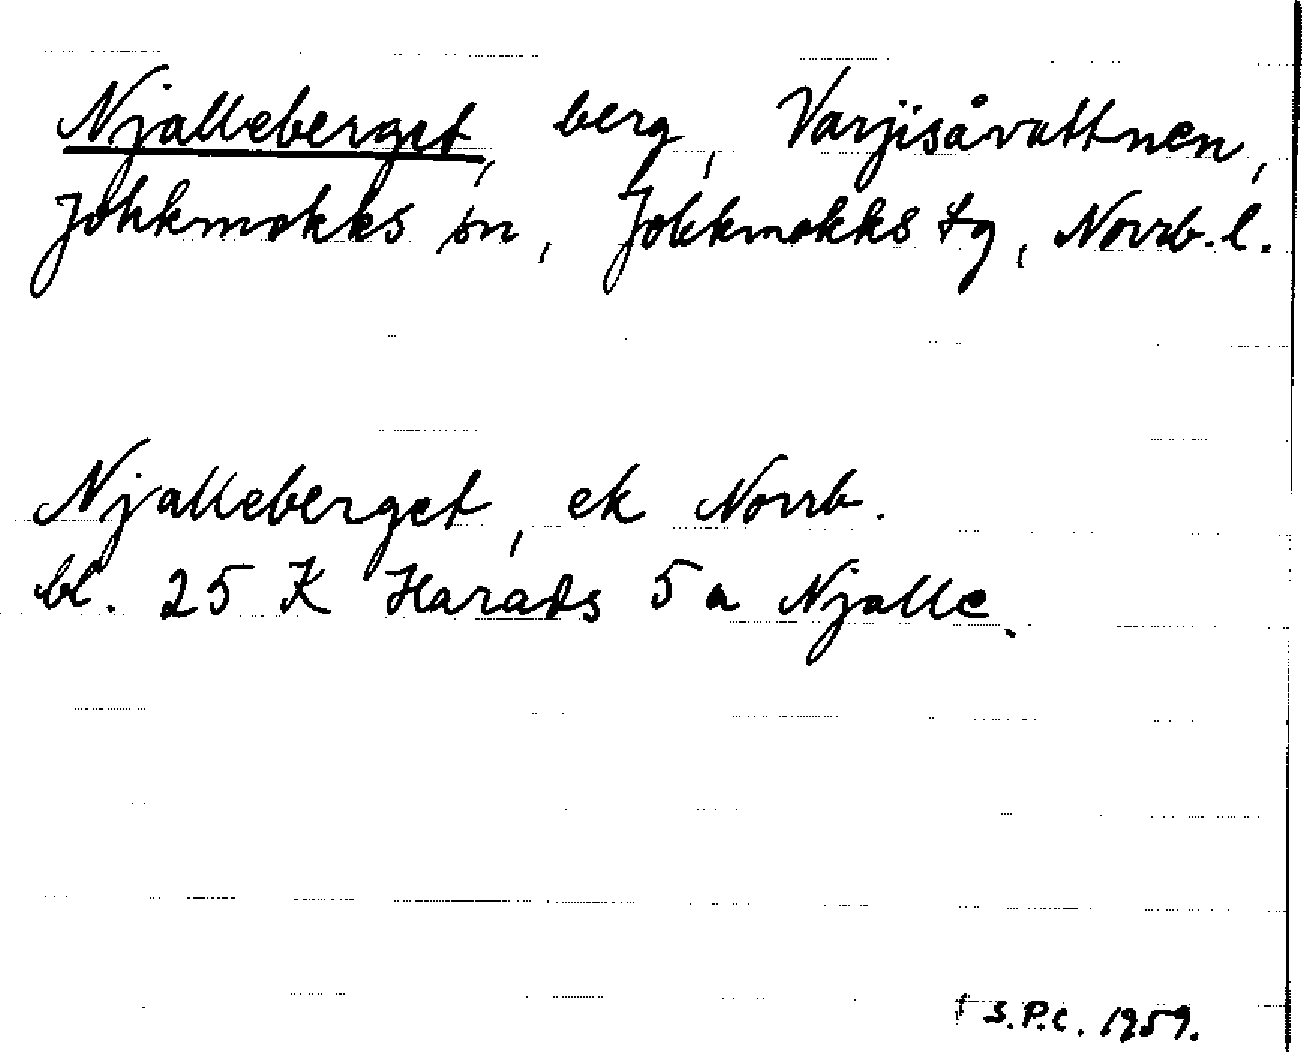 Njalleberget, berg, Varjisåvattnen,
Jokkmokks sn, Jokkmokks tg, Norrb. l.
Njalleberget, ek Norrb.
bl. 25 K Harads 5 a Njalle.
S.P.C. 1959.